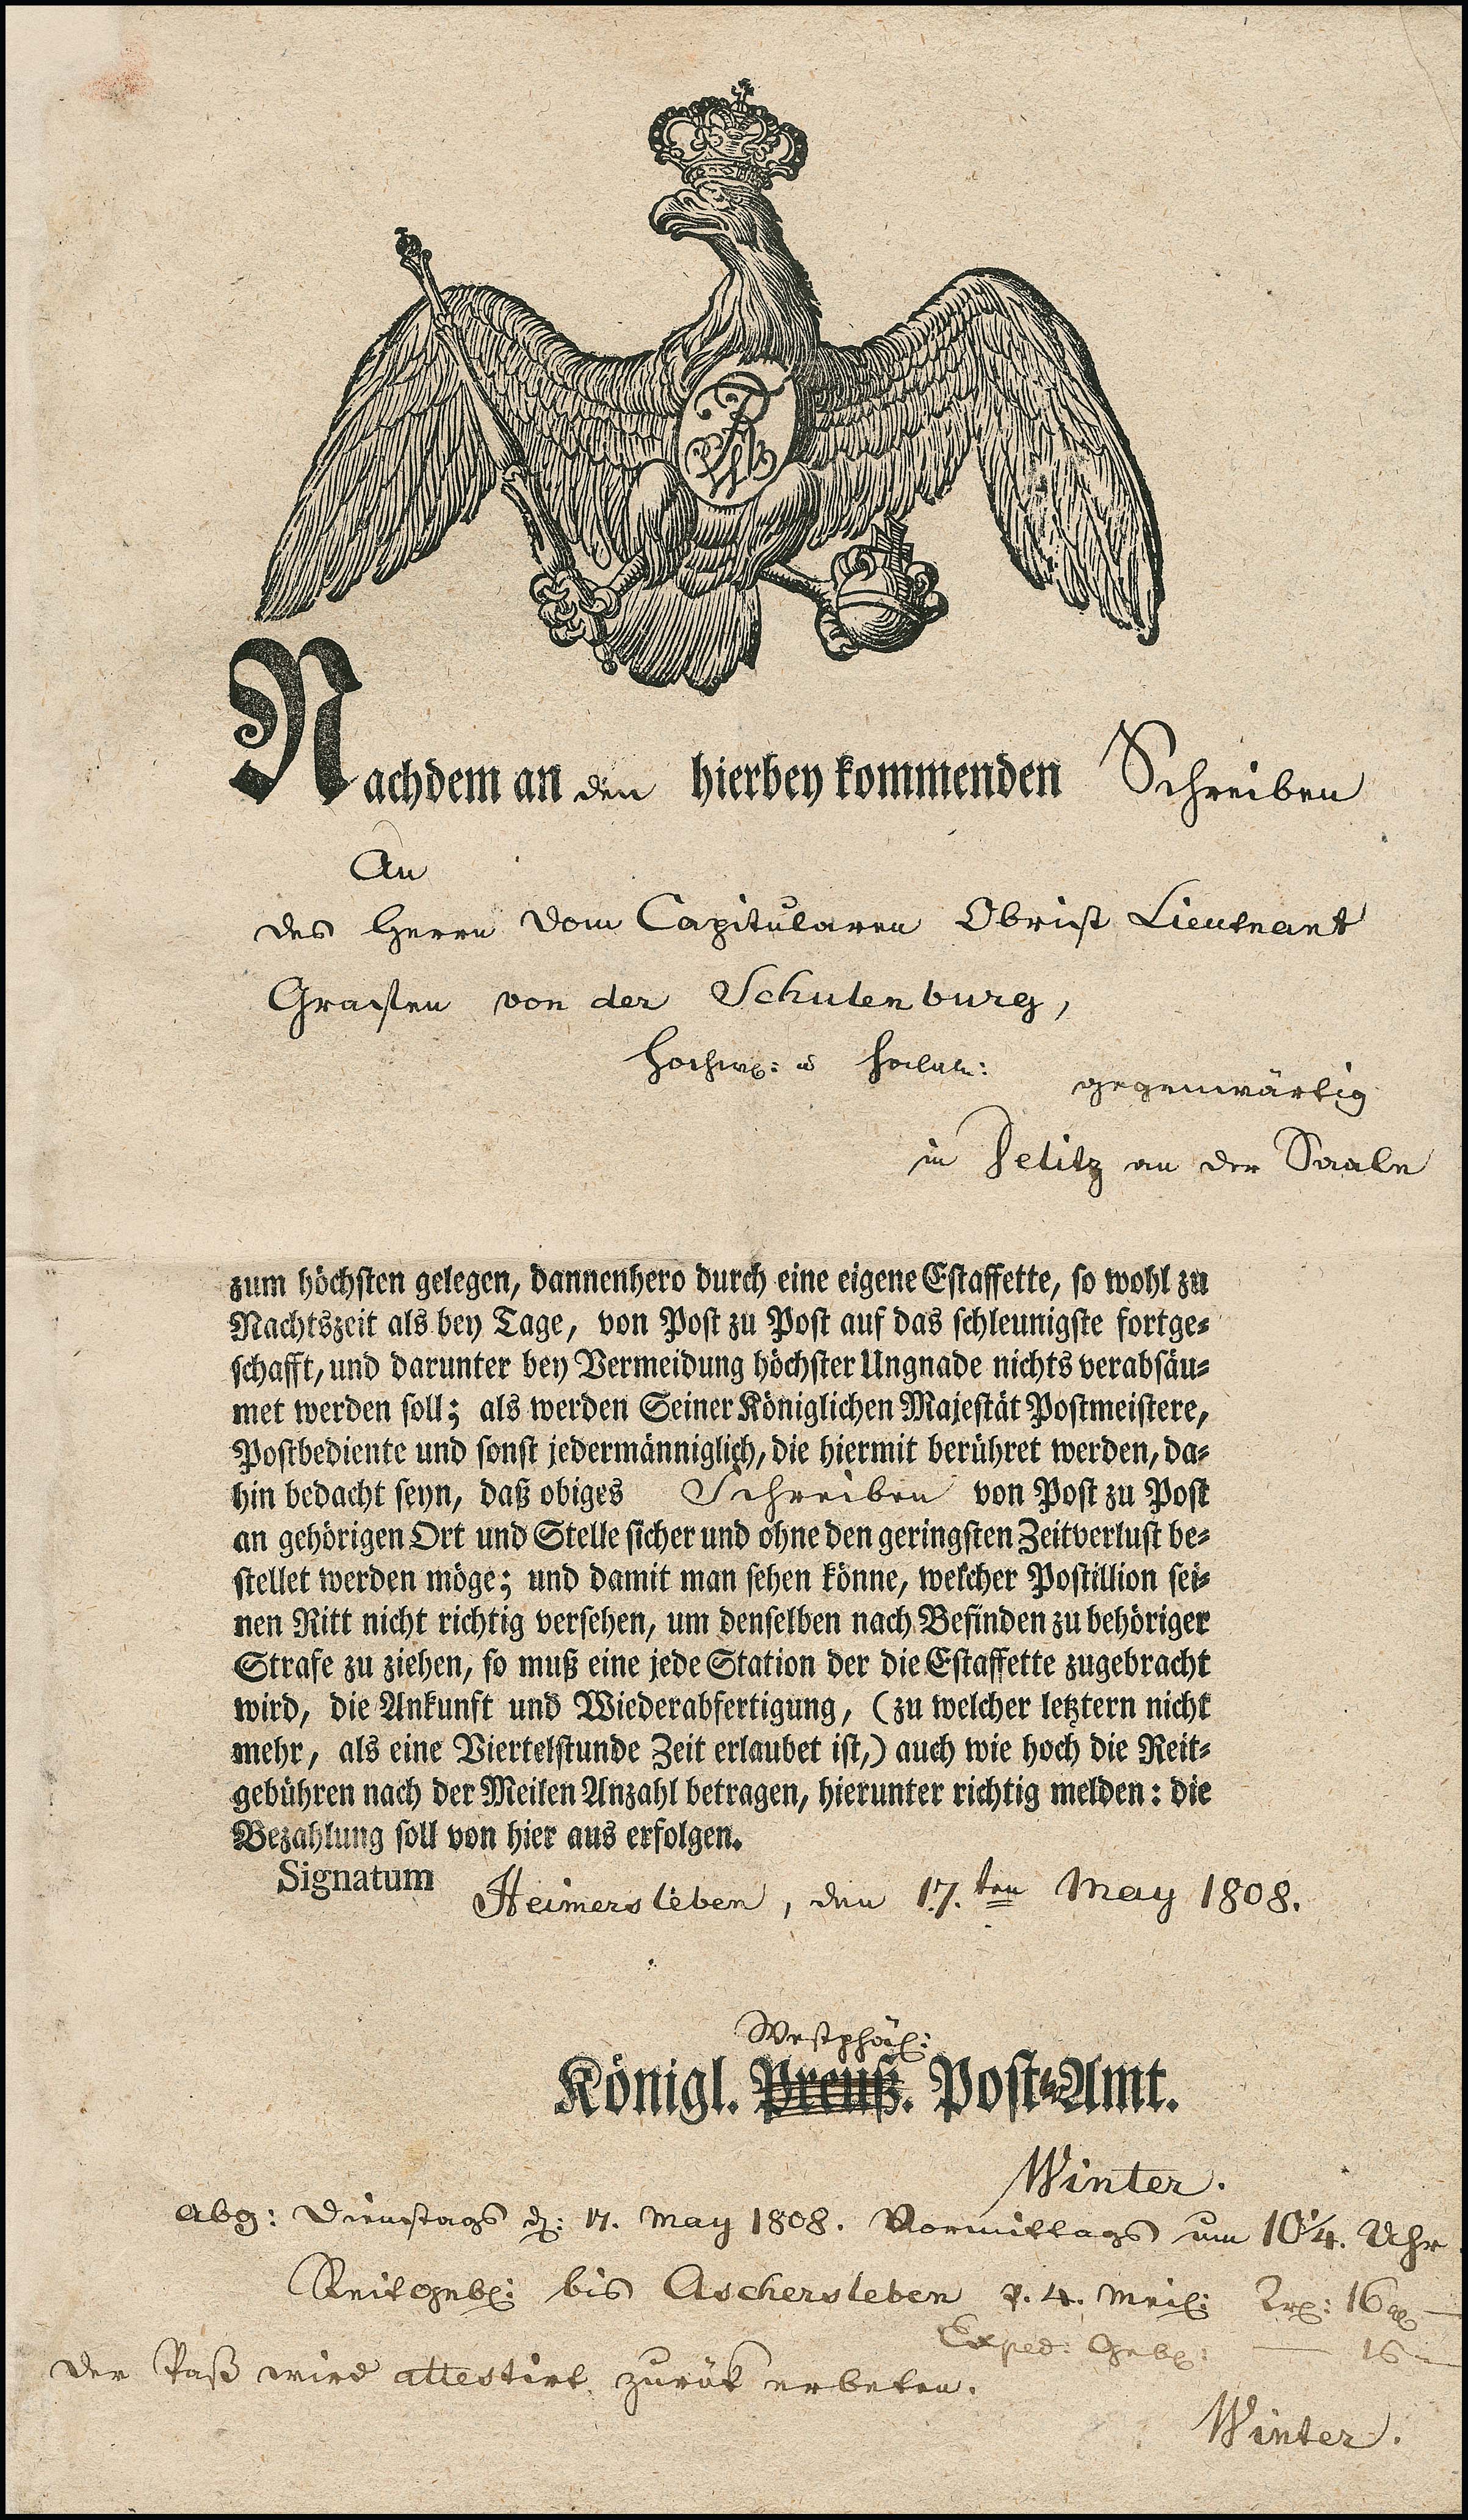 Nachdem an den hierbey kommenden Schreiben
An
des Herrn Dom Capitularen Obrist Lieutnant
Grafen von der Schulenburg,
gegenwärtig
in an der Saale
zum höchsten gelegen, dannenhero durch eine eigene Estaffette, so wohl zu
Nachtszeit als bey Tage, von Post zu Post auf das schleunigste fortge-
schafft, und darunter bey Vermeidung höchster Ungnade nichts verabsäu-
met werden soll; als werden Seiner Königlichen Majestät Postmeistere,
Postbediente und sonst jedermänniglich, die hiermit berühret werden, da-
hin bedacht seyn, daß obiges Schreiben von Post zu Post
an gehörigen Ort und Stelle sicher und ohne den geringsten Zeitverlust be-
stellet werden möge; und damit man sehen könne, welcher Postillion sei-
nen Ritt nicht richtig versehen, um denselben nach Befinden zu behöriger
Strafe zu ziehen, so muß eine jede Station der die Estaffette zugebracht
wird, die Ankunft und Wiederabfertigung, (zu welcher letztern nicht
mehr, als eine Viertelstunde Zeit erlaubet ist,) auch wie hoch die Reit-
gebühren nach der Meilen Anzahl betragen, hierunter richtig melden: die
Bezahlung soll von hier aus erfolgen.
Signatum Heimersleben, den 17.ten May 1808.
Westphäl:
Königl. Preuß. Post-Amt.
Winter.
Abg: Dienstags d: 17. May 1808. Vormittags um 10 1/4. Uhr
Reitgeb: bis Aschersleben p. 4. Meil: 16
Exped: Geb: 16
Der Paß wird attestirt zurük erbeten.
Winter.